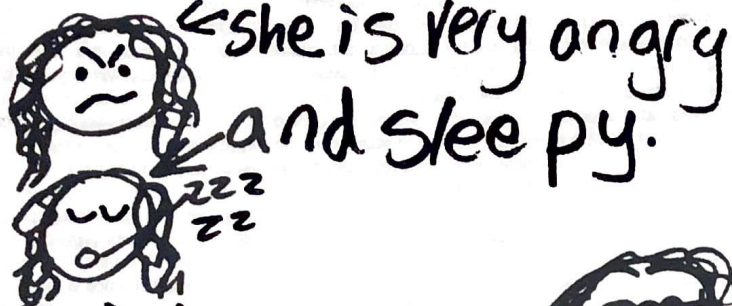 she is very angry
and sleepy.
zzz
zz